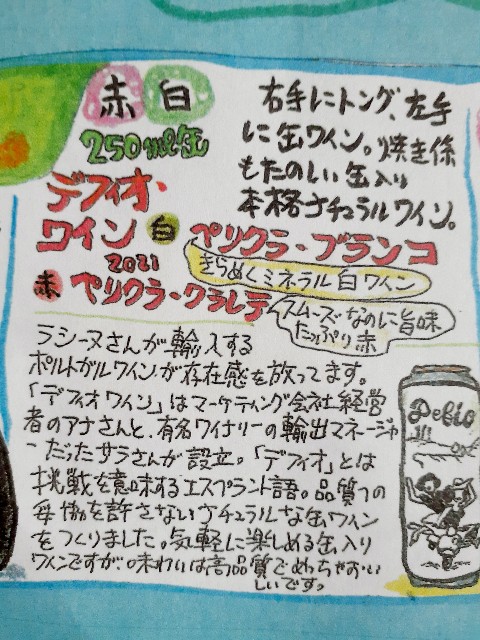 赤 白
250ml缶
右手にトング、左手
に缶ワイン。焼き係
もたのしい缶入り
本格ナチュラルワイン。
デフィオ・
ワイン
白 ペリクラ・ブランコ
きらめくミネラル白ワイン
2021
赤 ペリクラ・クラレテ
スムーズなのに旨味
たっぷり赤
ラシーヌさんが輸入する
ポルトガルワインが存在感を放ってます。
「デフィオワイン」はマーケティング会社経営
者のアナさんと、有名ワイナリーの輸出マネージャ
ーだったサラさんが設立。「デフィオ」とは
挑戦を意味するエスプラント語。品質への
妥協を許さないナチュラルな缶ワイン
をつくりました。気軽に楽しめる缶入り
ワインですが、味わいは高品質でめちゃおい
しいです。
Defio